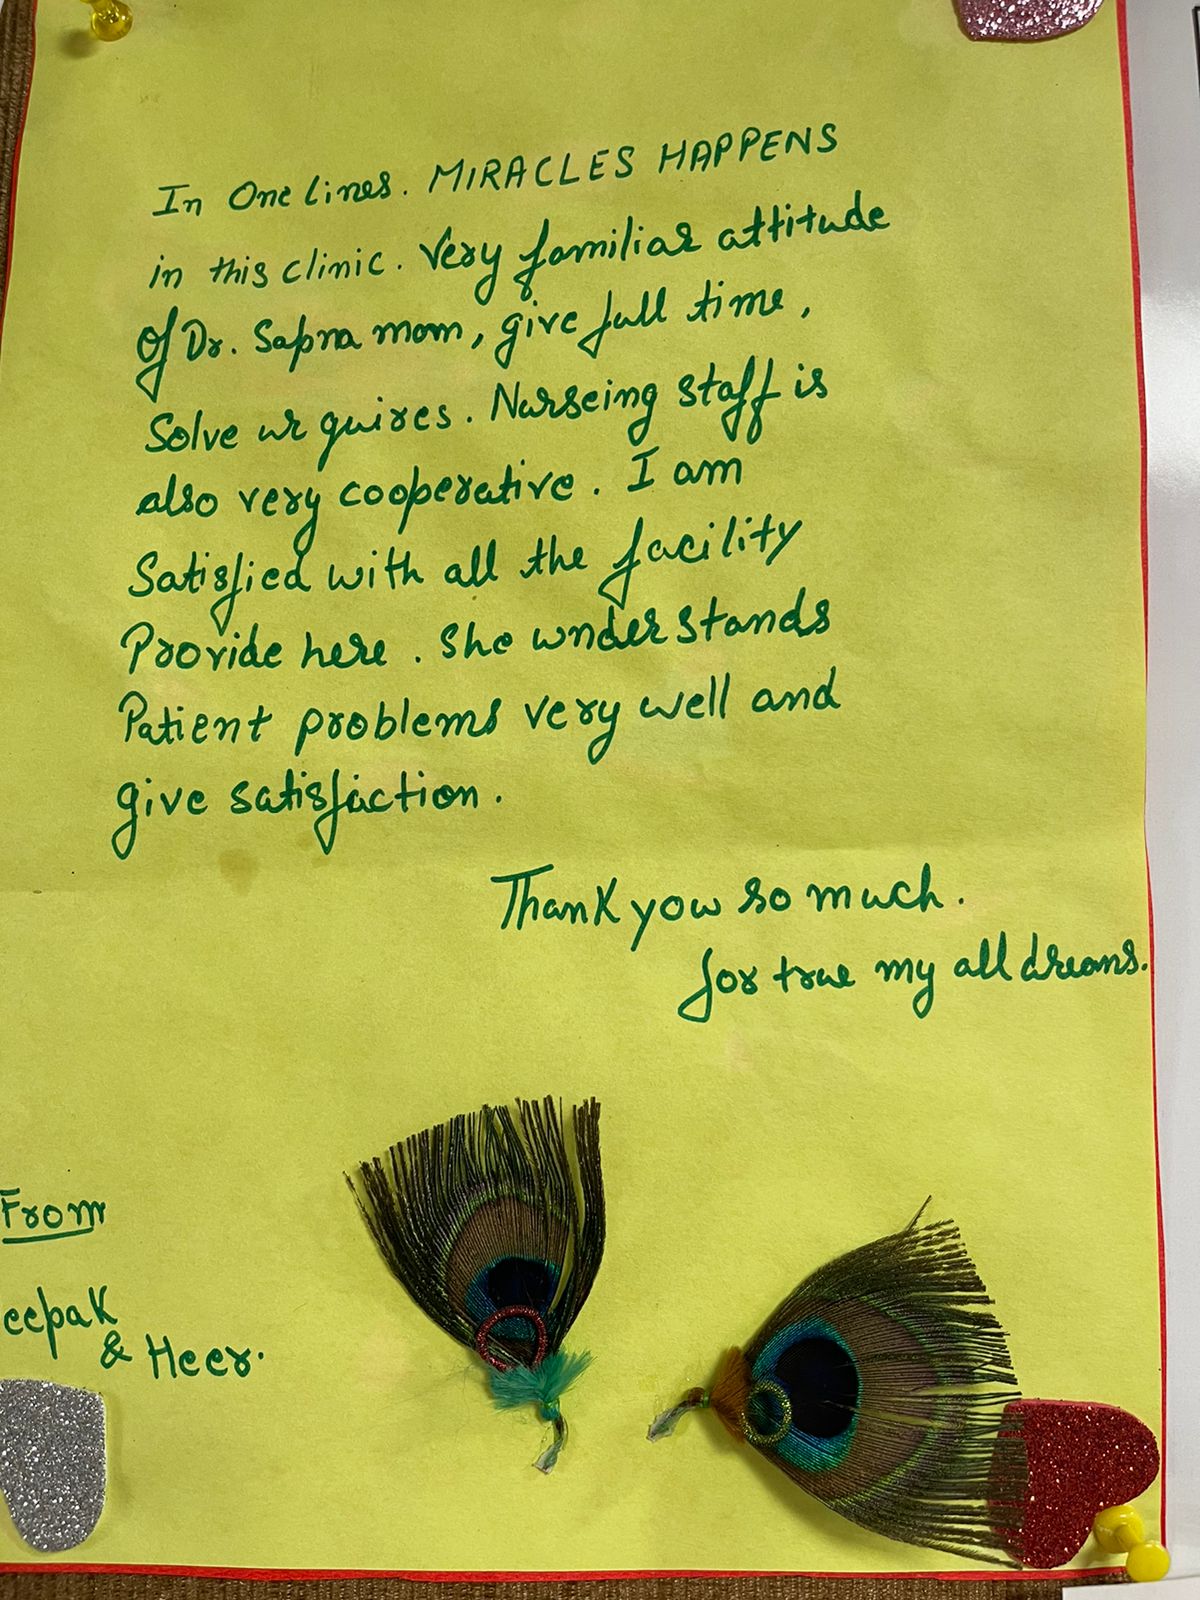 In One lines. MIRACLES HAPPENS
in this clinic. Very familiar attitude
of Dr. Sapna mam, give full time,
Solve ur quires. Nurseing staff is
also very cooperative. I am
Satisfied with all the facility
Provide here. She understands
Patient problems very well and
give satisfaction.
Thank you so much.
for true my all dreams.
From
eepak
& Heer.